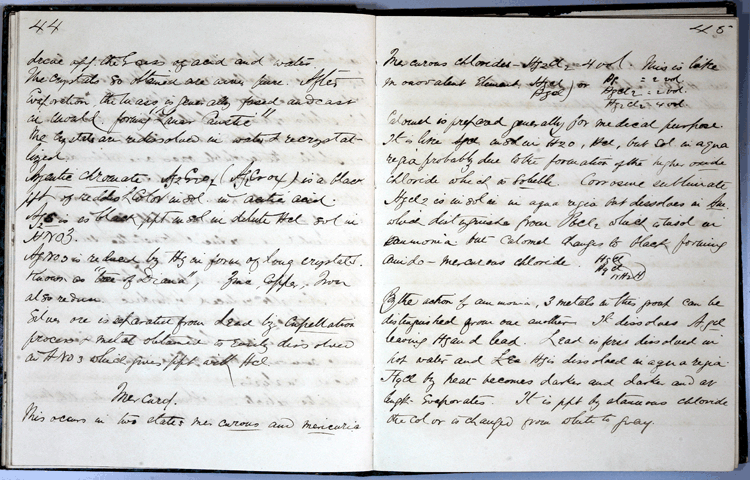 44
drive off the Excess of acid and water
The crystals so obtained are very pure. After
Evaporation the mass is generally fused and cast
in form "Lunar Caustic"
The crystals are redissolved in water & recrystal-
lized.
Chromate is a black
ppt of reddish color insol in acetic acid.
is a black ppt insol in dilute Hcl sol in
HNO3.
AgNO3 is reduced by Hg in form of long crystals.
Known as "tree of Diana", Zinc Copper, Iron
also reduce
Silver ore is separated from Lead by Cupellation
process & metal obtained is Easily dissolved
in HNO3 which gives ppt with Hcl.
Mercury.
This occurs in two states mercurous and mercuric
45
Mercurous chloride - 4 vol. This is like
monovalent Element or
= 2 vol
Hgcl2 = 2 vol
= 4 vol
Calomel is prepared generally for medical purpose
It is like insol in H2O, Hcl, but sol in aqua
regia probably due to the formation of the higher
chloride which is soluble. Corrosive sublimate
Hgcl2 is insol in aqua regia but dissolves in
which distinguishes from which is insol in
ammonia but Calomel changes to black forming
amido-mercurous chloride.
By the action of ammonia, 3 metals in this group can be
distinguished from one another. It dissolves Agcl
leaving Hg and lead. Lead is first dissolved in
hot water and Hg is dissolved in aqua regia.
by heat becomes darker and darker and at
length Evaporates. It is ppt by stannous chloride
the color is changed from white to gray.